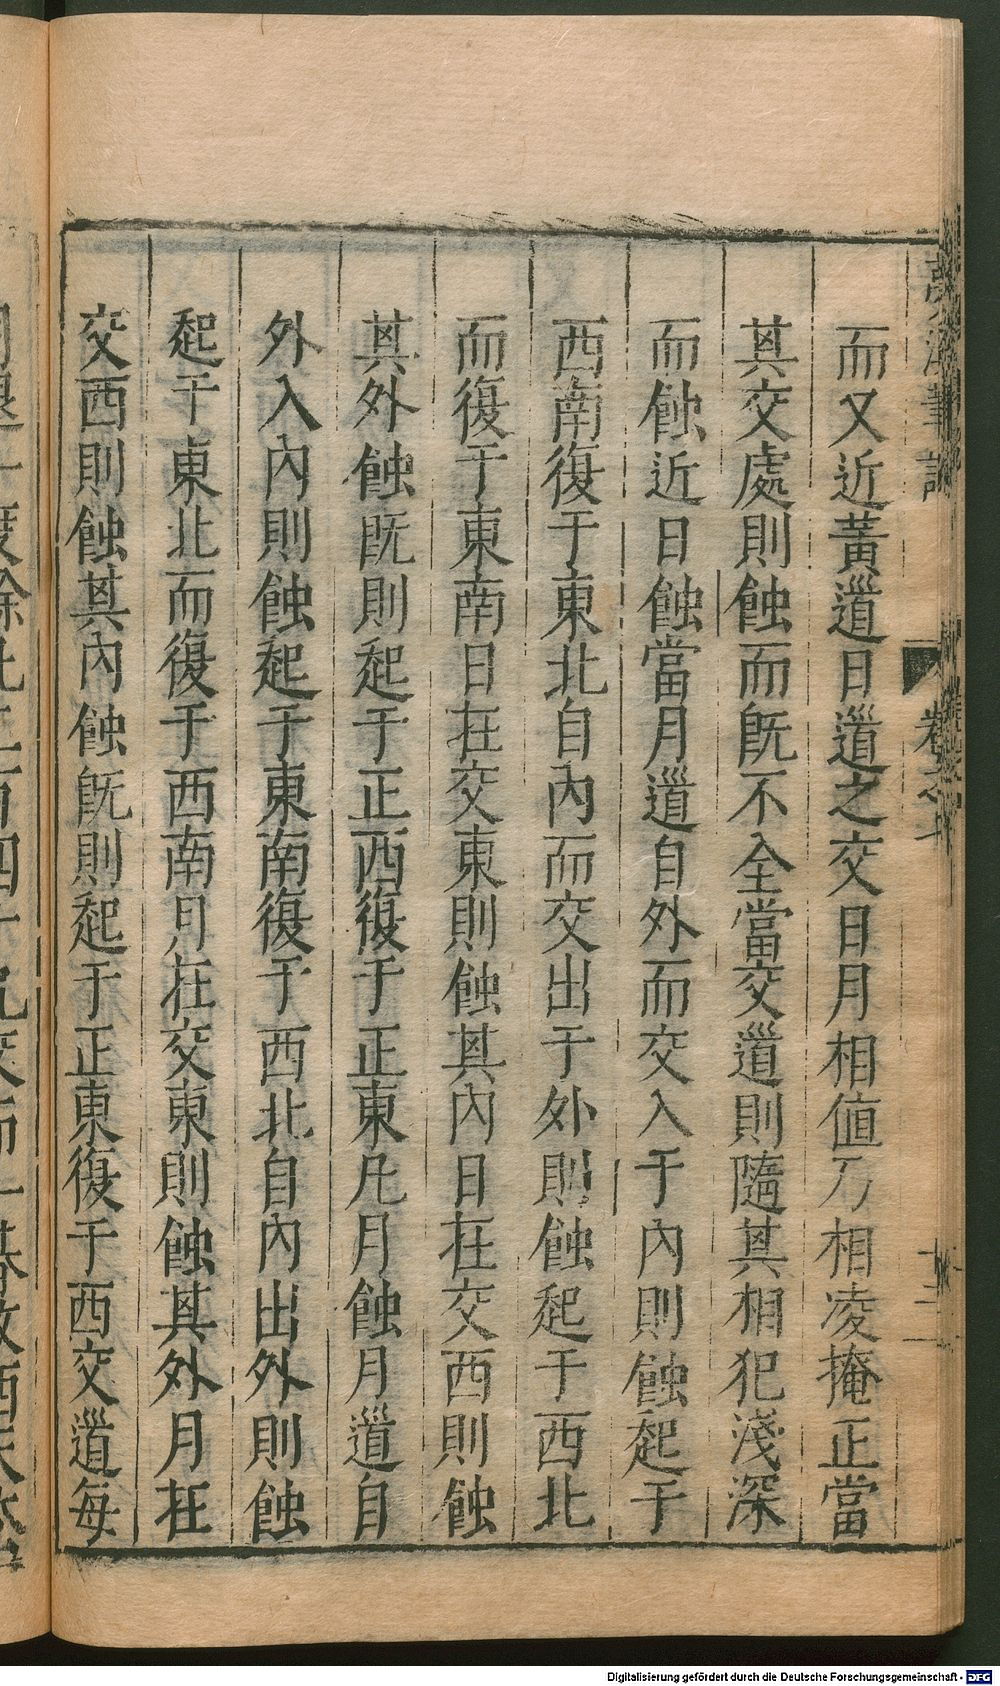 夢溪筆談 卷之七
而又近黃道日道之交日月相值乃相凌掩正當
其交處則蝕而既不全當交道則隨其相犯淺深
而蝕近日蝕當月道自外而交入于內則蝕起于
西南復于東北自內而交出于外則蝕起于西北
而復于東南日在交東則蝕其內日在交西則蝕
其外蝕既則起于正西復于正東凡月蝕月道自
外入內則蝕起于東南復于西北自內出外則蝕
起于東北而復于西南月在交東則蝕其外月在
交西則蝕其內蝕既則起于正東復于西交道每
Digitalisierung gefördert durch die Deutsche Forschungsgemeinschaft - DFG